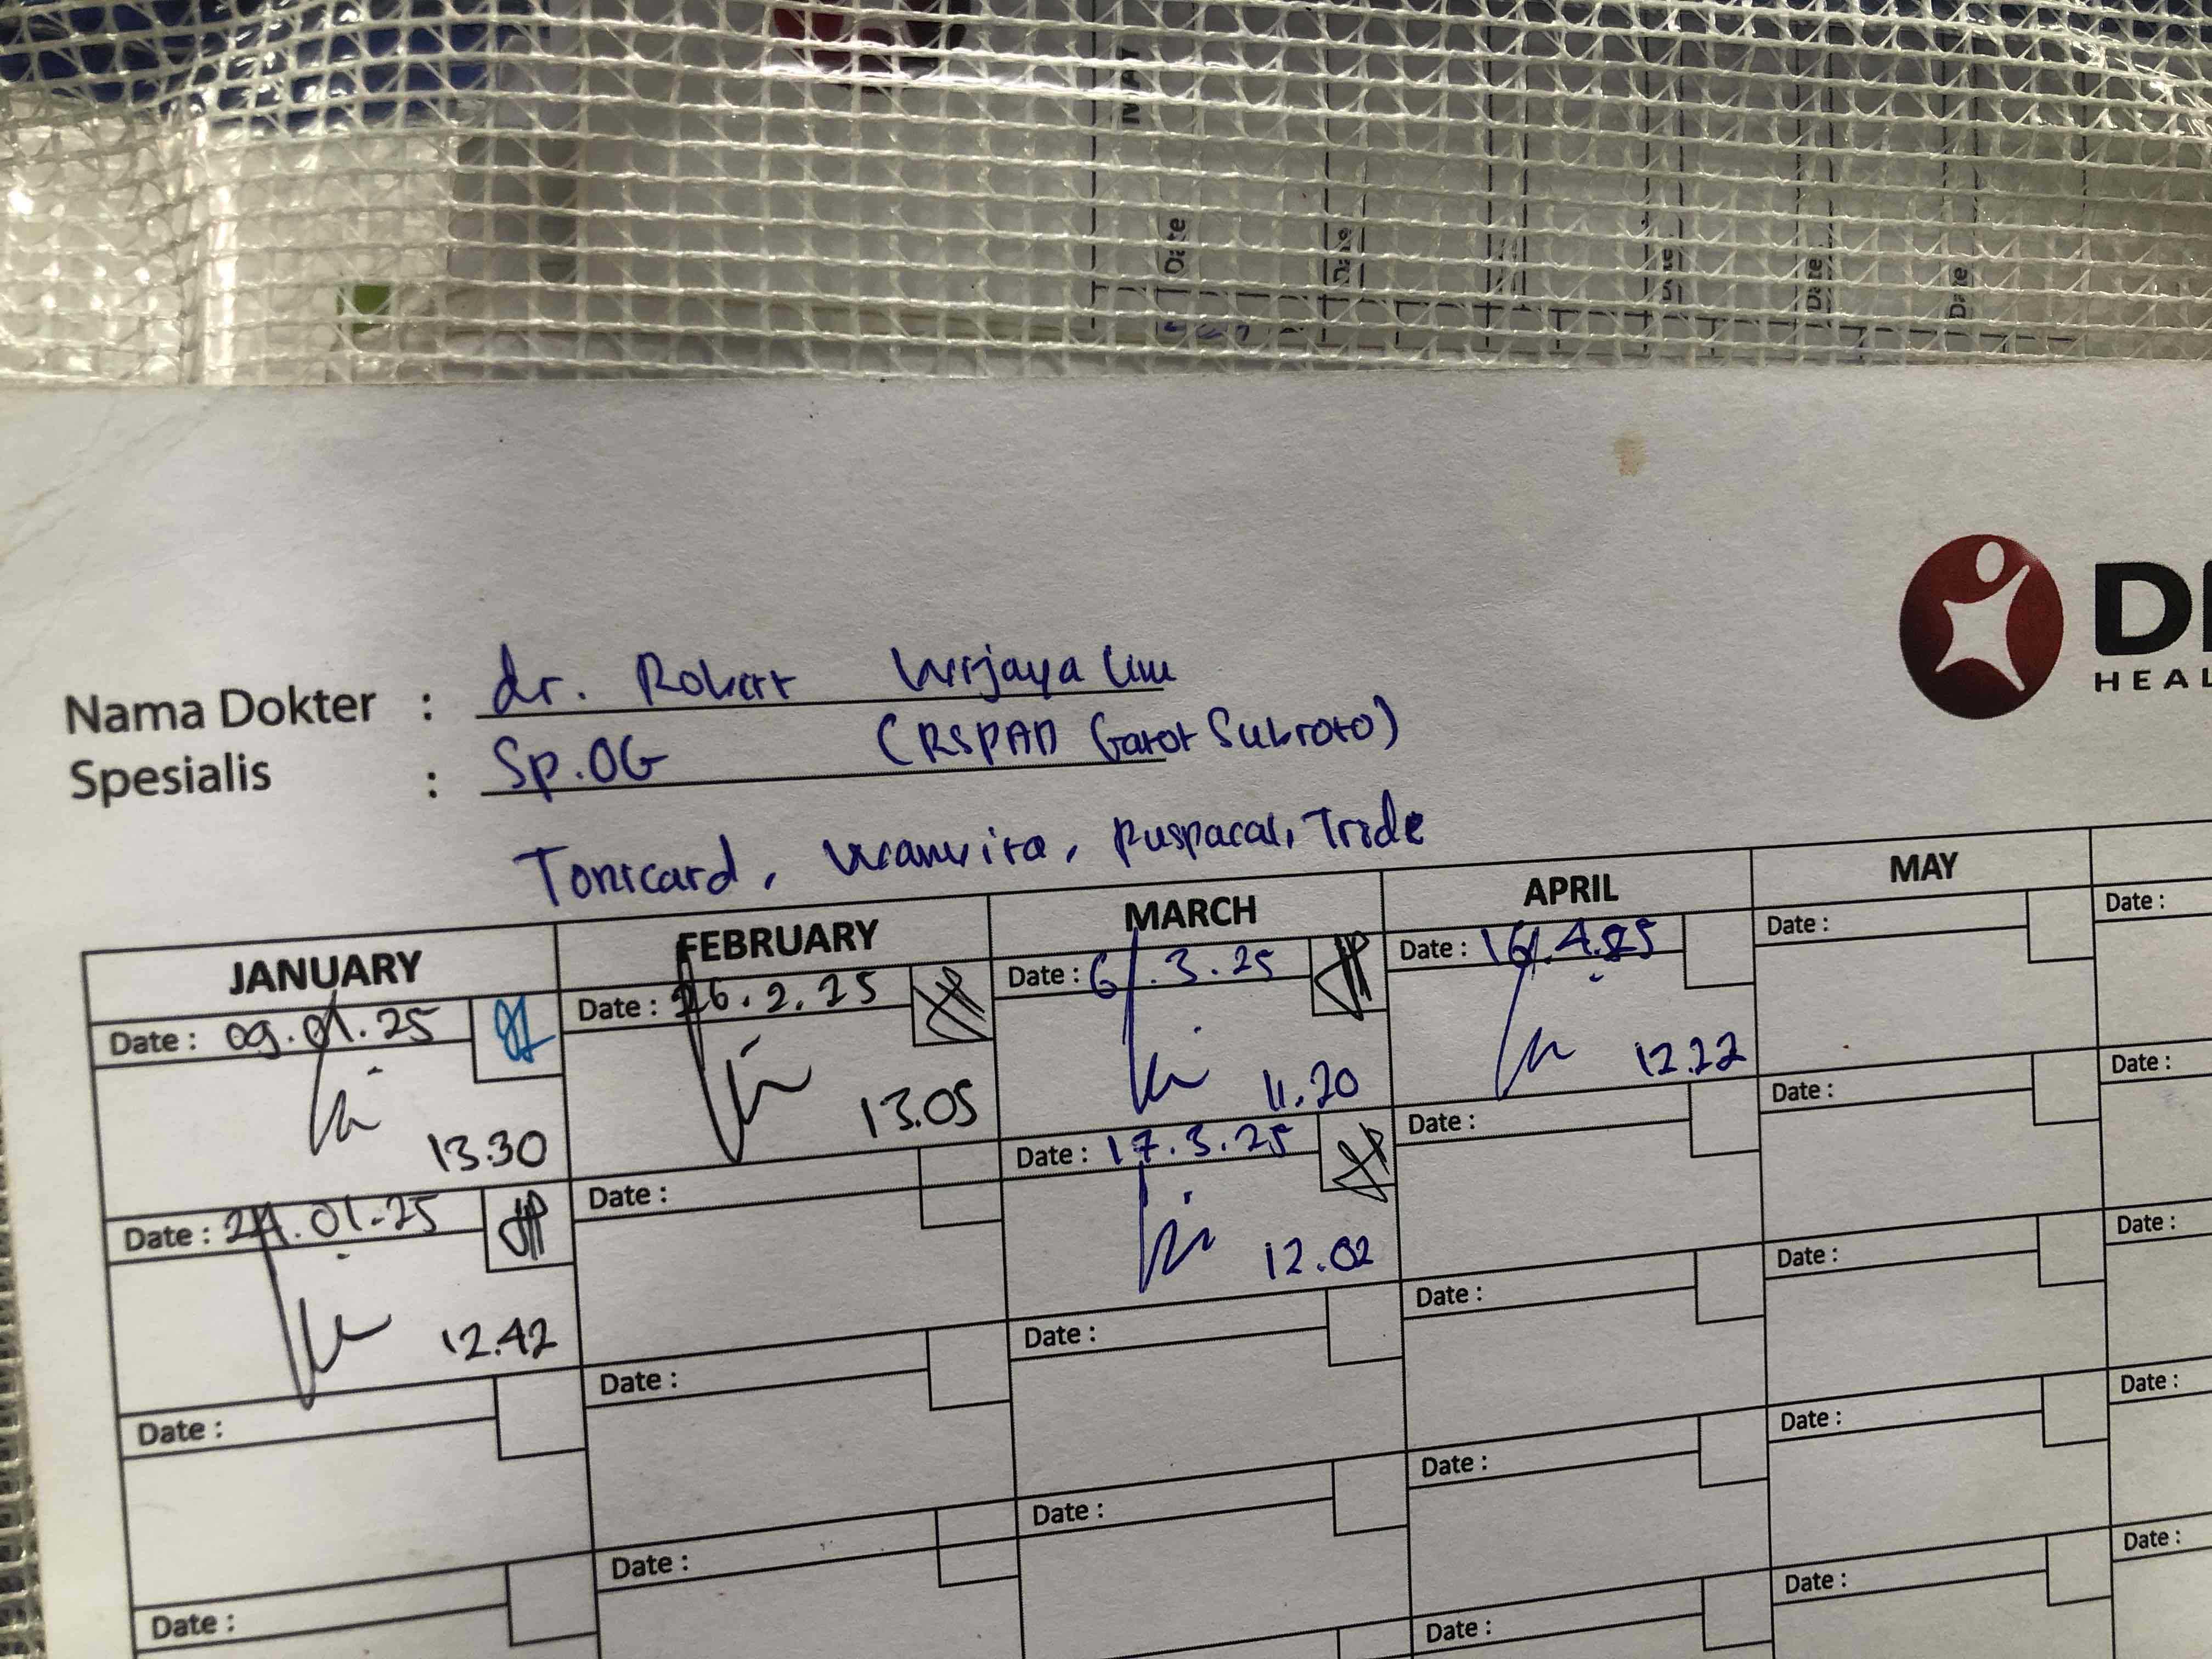 Date
Date
Date
Date
Date
Nama Dokter : dr. Robert Wijaya Lim
Spesialis : Sp.OG (RSPAD Gatot Subroto)
HEAL
Tonicard, Tride
JANUARY FEBRUARY MARCH APRIL MAY
Date : 09.01.25 Date : 26.2.25 Date : 6.3.25 Date : 16.4.25 Date : Date :
13.30 13.05 11.20 12.22
Date : 24.01.25 Date : Date : 17.3.25 Date : Date : Date :
12.42 12.02
Date : Date : Date : Date : Date : Date :
Date : Date : Date : Date : Date : Date :
Date : Date : Date :